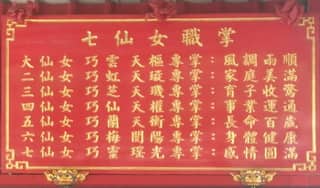 七仙女職掌
大仙女巧雲天樞專掌：風調雨順
二仙女巧虹天璇專掌：家庭美滿
三仙女巧芝天璣專掌：育子收驚
四仙女巧仙天權專掌：事業運通
五仙女巧蘭玉衡專掌：長命百歲
六仙女巧梅開陽專掌：身體健康
七仙女巧靈瑤光專掌：感情圓滿